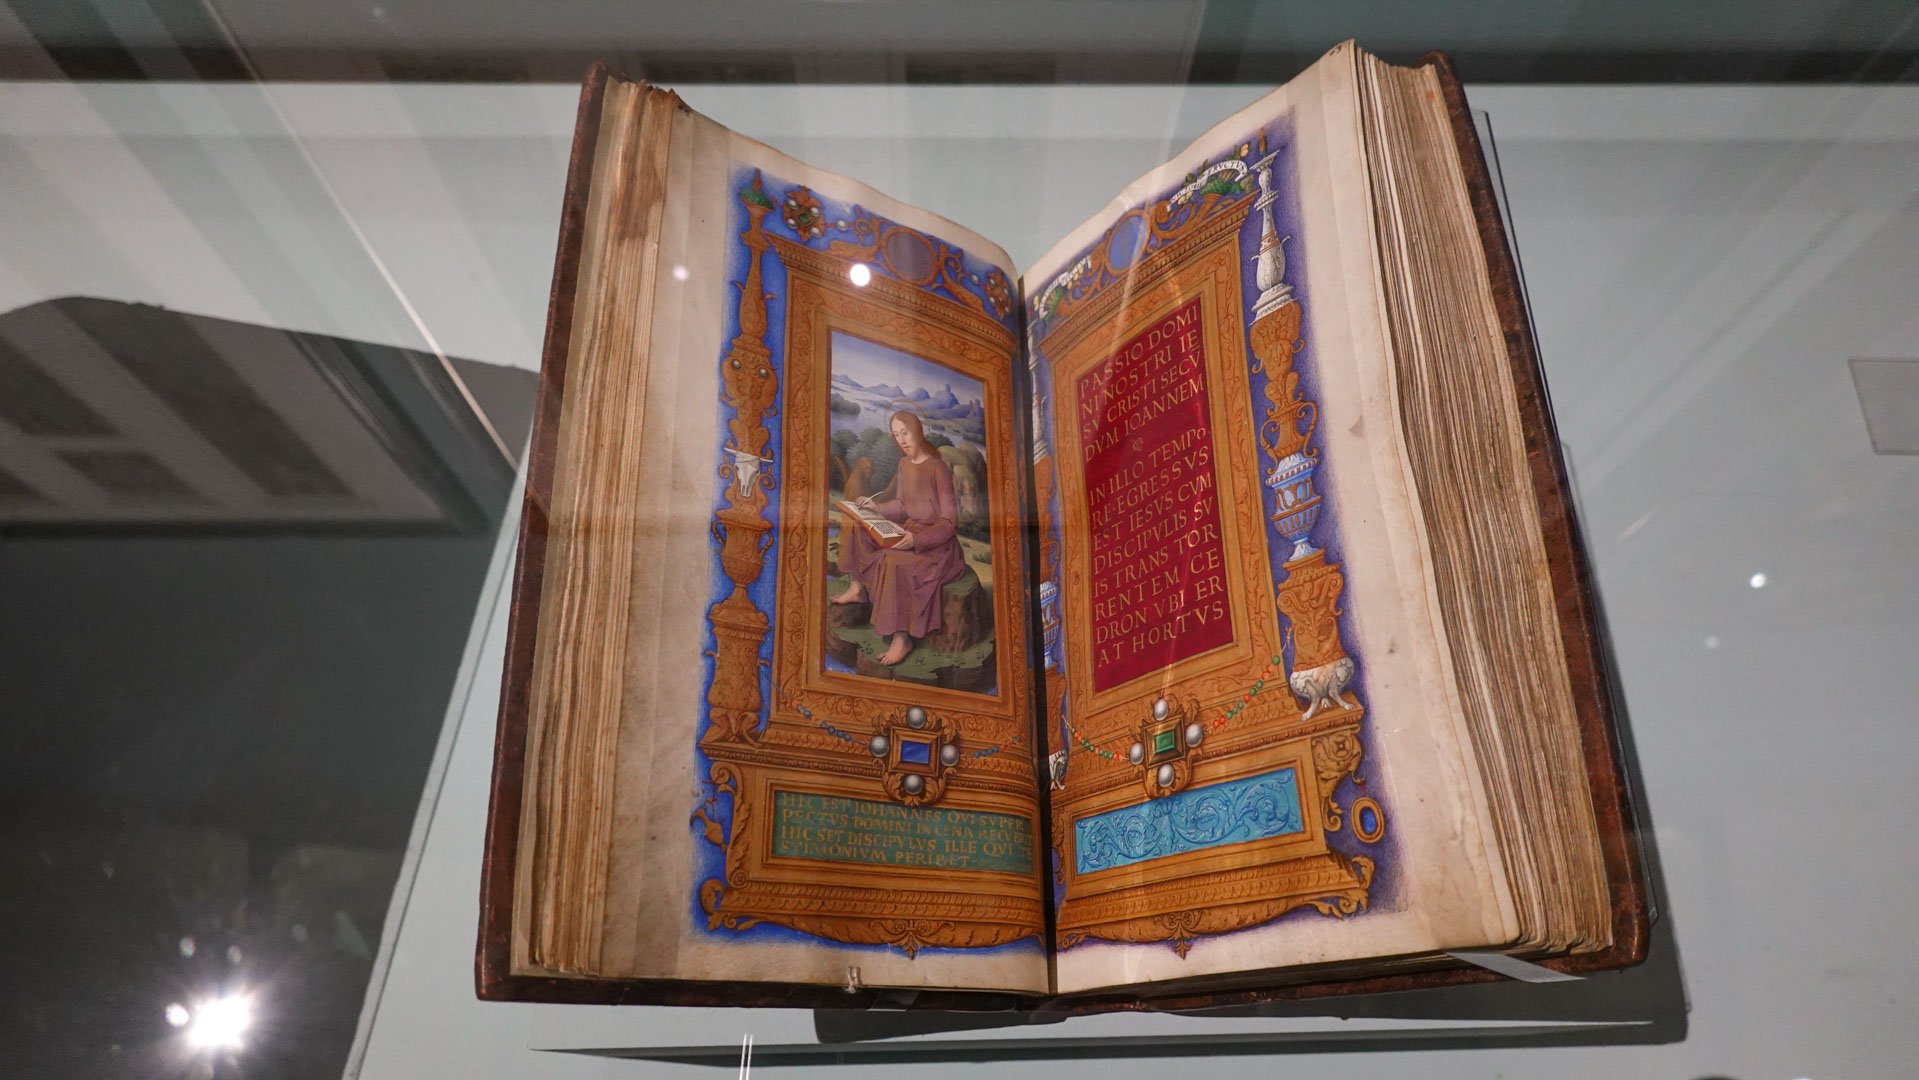 HIC EST IOHANNES QVI SVPER
PECTVS DOMINI IN CENA RECVBVIT
HIC EST DISCIPVLVS ILLE QVI TE
STIMONIVM PERIBET
FRVCTVS
PASSIO DOMI
NI NOSTRI IE
SV CRISTI SECV
DVM IOANNEM
IN ILLO TEMPO
RE·EGRESSVS
EST IESVS CVM
DISCIPVLIS SV
IS TRANS TOR
RENTEM CE
DRON VBI ER
AT HORTVS